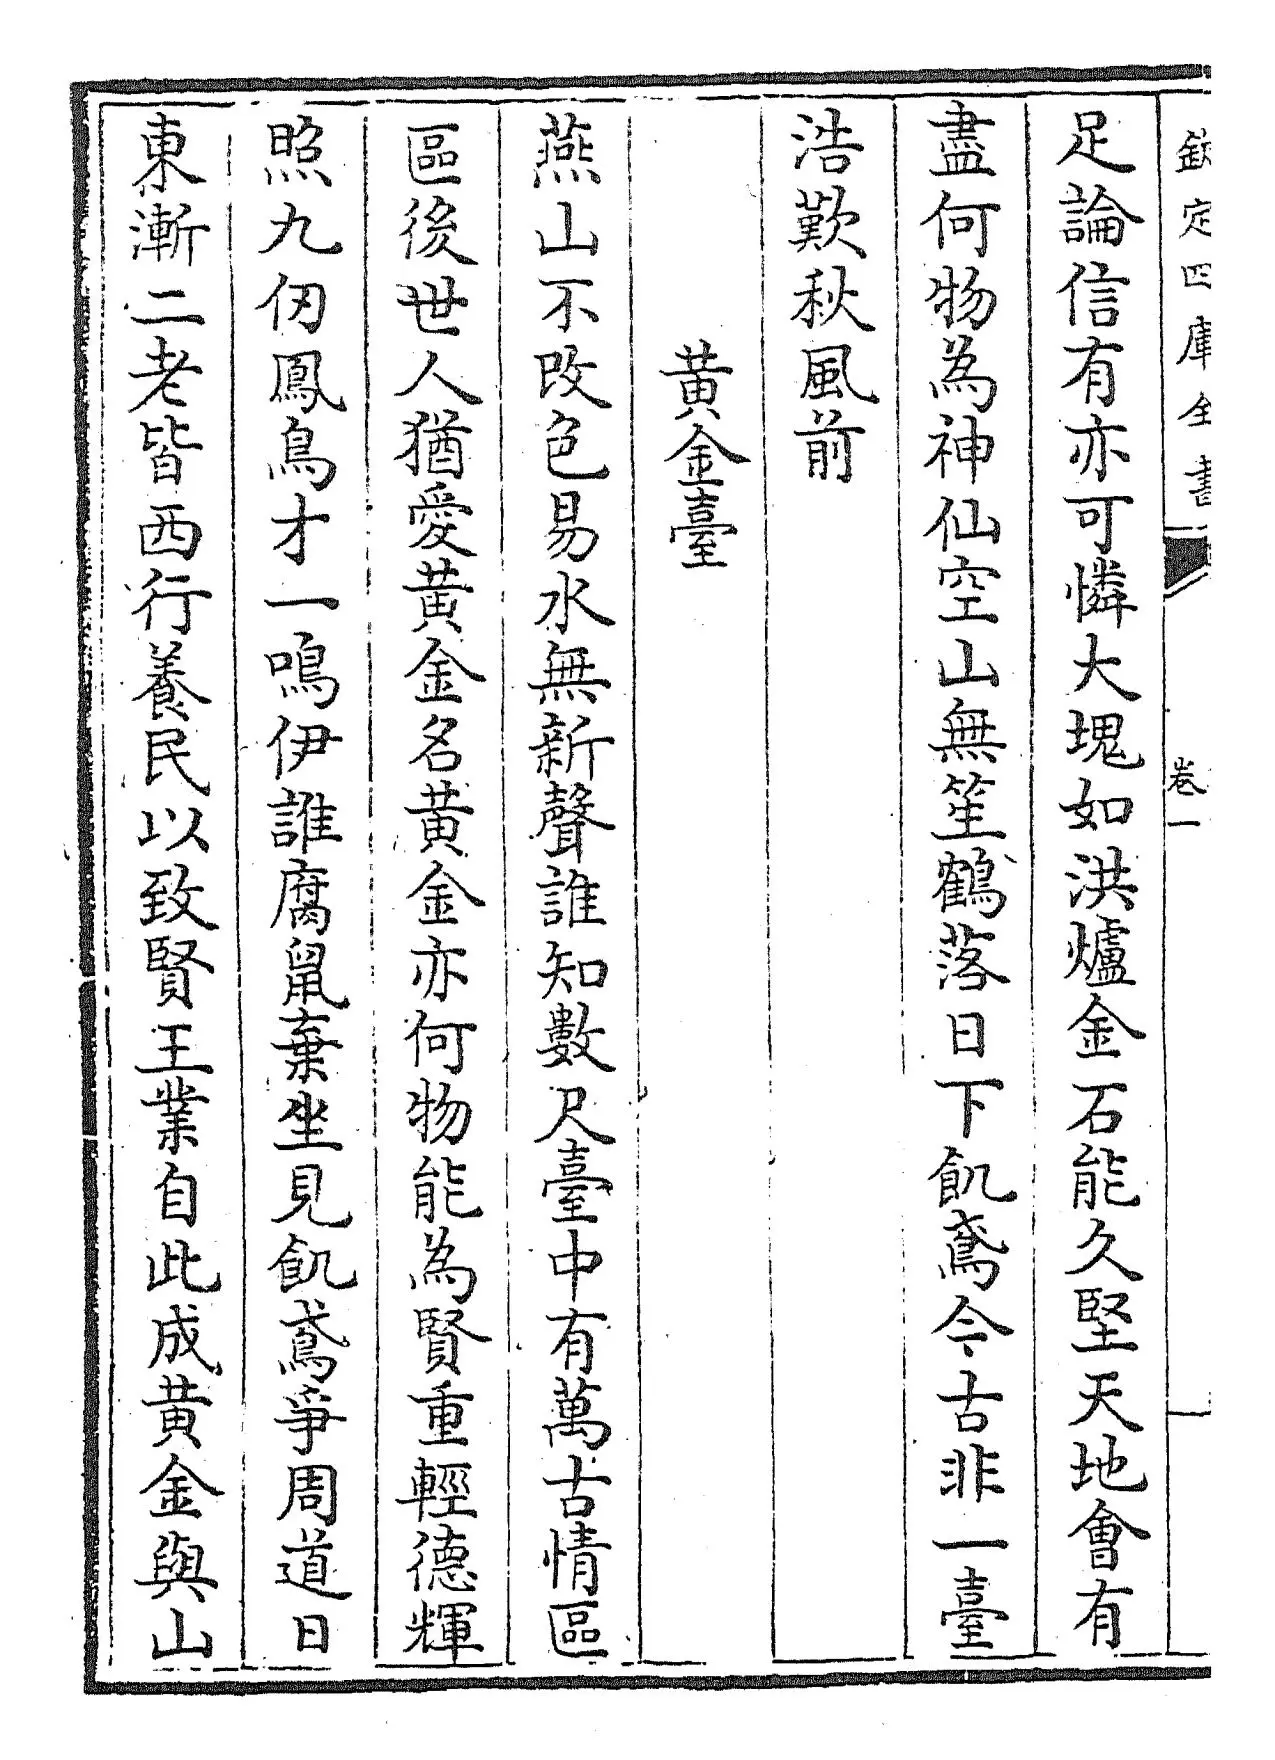 欽定四庫全書
卷一
足論信有亦可憐大塊如洪爐金石能久堅天地會有
盡何物為神仙空山無笙鶴落日下飢鳶今古非一臺
浩歎秋風前
黃金臺
燕山不改色易水無新聲誰知數尺臺中有萬古情區
區後世人猶愛黃金名黃金亦何物能為賢重輕德輝
照九仞鳳鳥才一鳴伊誰腐鼠棄坐見飢鳶爭周道日
東漸二老皆西行養民以致賢王業自此成黃金與山